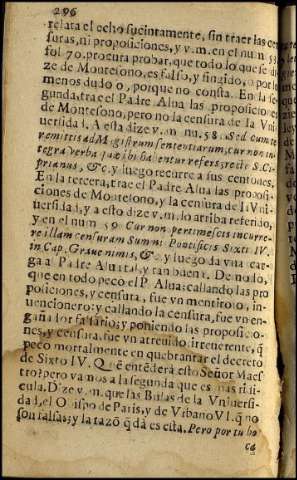 296
relata el echo sucintamente, sin traer las cen
suras, ni proposiciones, y v.m. en el num. 58.
fol. 70. procura probar, que todo lo que se di-
ze de Montesono, es falso, y fingido, o por lo
menos dudoso, porque no consta. En la se-
gunda, trae el Padre Alua las proposiciones
de Montesono, pero no la censura de la Vni-
uersidad. A esta dize v.m. nu. 58. Sed cum te
remittis ad Magistrum sententiarum, cur non in-
tegra verba
prianus, &c. y luego recurre a sus centones.
En la tercera, trae el Padre Alua las proposi-
ciones de Montesono, y la censura de la Vni-
uersidad, y a esto dize v.m. lo arriba referido,
y en el num. 59. Cur non pertimescis incurre-
re illam censuram Summi Pontificis Sixti IV.
in Cap. Graue nimis, &c. y luego da vna car-
ga al Padre Alua tal, y tan buena. De modo,
que en todo peco el P. Alua: callando las pro
posiciones, y censura, fue vn mentiroso, in-
uencionero: y callando la censura, fue vn en-
gañador falsario; y poniendo las proposicio-
nes, y censura, fue vn atreuido, irreuerente, q̃
pecò mortalmente en quebrantar el decreto
de Sixto IV. Quiẽ entẽderá esto Señor Maes
tro? pero vamos a la segunda que es mas ridi-
cula. Dize v.m. que las Bulas de la Vniuersi-
dad, el Obispo de Paris, y de Vrbano VI. q̃ no
son falsas; y la razõ q̃ dá es esta. Pero por tu bo
ca